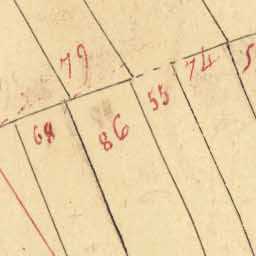 79
74
55
86
68